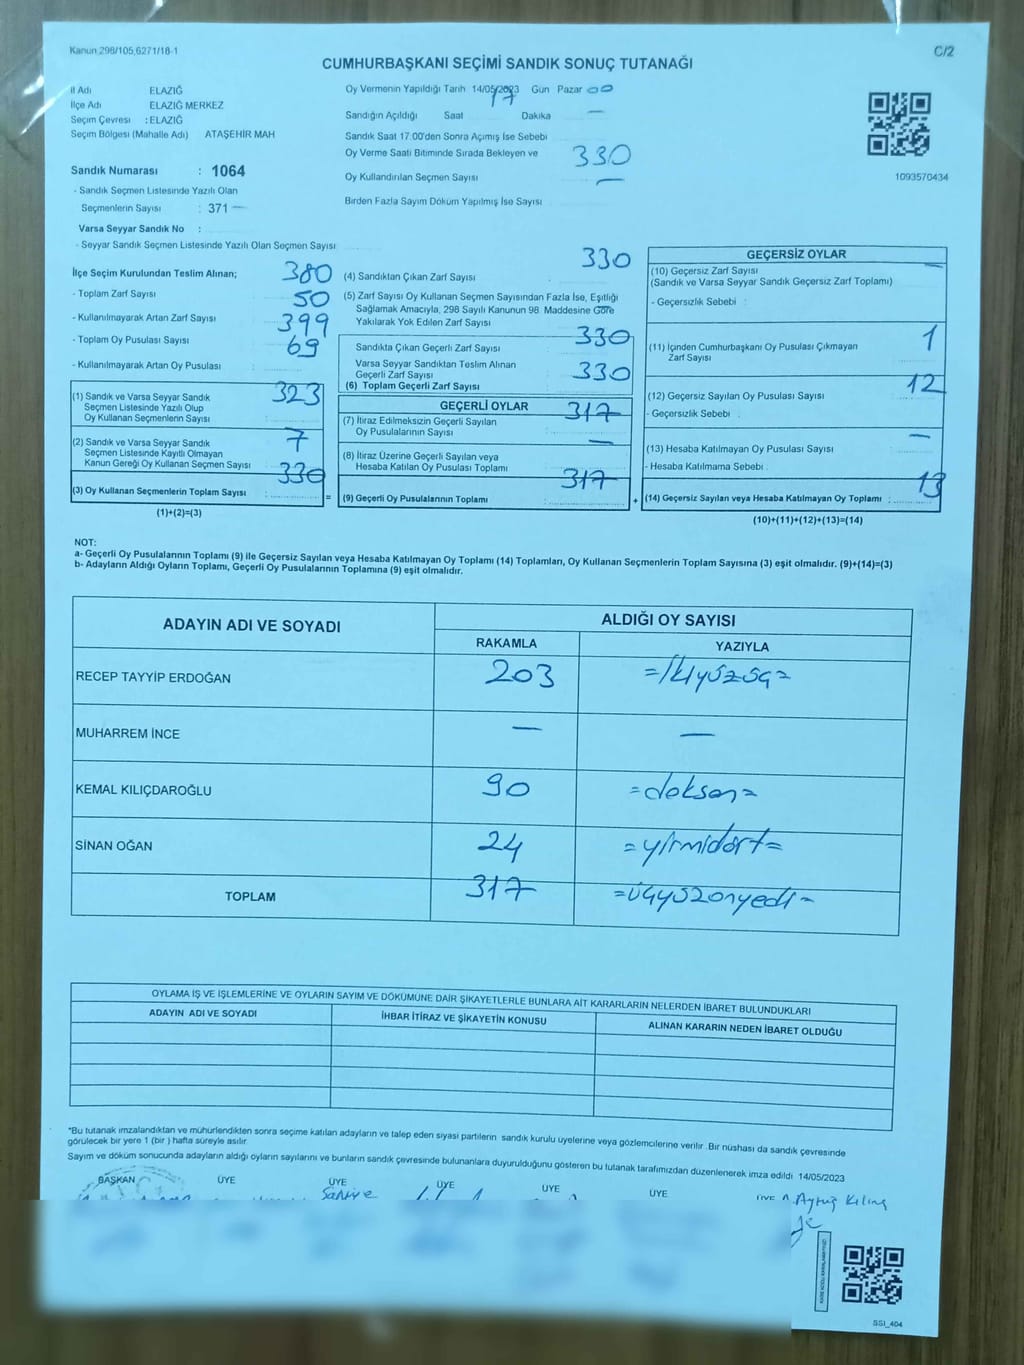 Kanun 298/105,6271/18-1
C/2
CUMHURBAŞKANI SEÇİMİ SANDIK SONUÇ TUTANAĞI
İl Adı ELAZIĞ
İlçe Adı ELAZIĞ MERKEZ
Seçim Çevresi : ELAZIĞ
Seçim Bölgesi (Mahalle Adı) ATAŞEHİR MAH
Sandık Numarası : 1064
- Sandık Seçmen Listesinde Yazılı Olan
Seçmenlerin Sayısı : 371
Varsa Seyyar Sandık No :
- Seyyar Sandık Seçmen Listesinde Yazılı Olan Seçmen Sayısı
Oy Vermenin Yapıldığı Tarih 14/05/2023 Gün Pazar
17 00
Sandığın Açıldığı Saat Dakika —
Sandık Saat 17.00'den Sonra Açımış İse Sebebi
Oy Verme Saati Bitiminde Sırada Bekleyen ve 330
Oy Kullandırılan Seçmen Sayısı —
Birden Fazla Sayım Döküm Yapılmış İse Sayısı
1093570434
İlçe Seçim Kurulundan Teslim Alınan; 380
- Toplam Zarf Sayısı 50
- Kullanılmayarak Artan Zarf Sayısı 399
- Toplam Oy Pusulası Sayısı 69
- Kullanılmayarak Artan Oy Pusulası
(1) Sandık ve Varsa Seyyar Sandık 323
Seçmen Listesinde Yazılı Olup
Oy Kullanan Seçmenlerin Sayısı
(2) Sandık ve Varsa Seyyar Sandık 7
Seçmen Listesinde Kayıtlı Olmayan
Kanun Gereği Oy Kullanan Seçmen Sayısı 330
(3) Oy Kullanan Seçmenlerin Toplam Sayısı :
(1)+(2)=(3)
330
(4) Sandıktan Çıkan Zarf Sayısı
(5) Zarf Sayısı Oy Kullanan Seçmen Sayısından Fazla İse, Eşitliği
Sağlamak Amacıyla, 298 Sayılı Kanunun 98. Maddesine Göre —
Yakılarak Yok Edilen Zarf Sayısı
Sandıkta Çıkan Geçerli Zarf Sayısı 330
Varsa Seyyar Sandıktan Teslim Alınan
Geçerli Zarf Sayısı 330
(6) Toplam Geçerli Zarf Sayısı
GEÇERLİ OYLAR 317
(7) İtiraz Edilmeksizin Geçerli Sayılan
Oy Pusulalarının Sayısı —
(8) İtiraz Üzerine Geçerli Sayılan veya
Hesaba Katılan Oy Pusulası Toplamı 317
= (9) Geçerli Oy Pusulalarının Toplamı :
GEÇERSİZ OYLAR
(10) Geçersiz Zarf Sayısı —
(Sandık ve Varsa Seyyar Sandık Geçersiz Zarf Toplamı)
- Geçersizlik Sebebi :
(11) İçinden Cumhurbaşkanı Oy Pusulası Çıkmayan 1
Zarf Sayısı
12
(12) Geçersiz Sayılan Oy Pusulası Sayısı
- Geçersizlik Sebebi :
(13) Hesaba Katılmayan Oy Pusulası Sayısı —
- Hesaba Katılmama Sebebi . 13
+ (14) Geçersiz Sayılan veya Hesaba Katılmayan Oy Toplamı :
(10)+(11)+(12)+(13)=(14)
NOT:
a- Geçerli Oy Pusulalarının Toplamı (9) ile Geçersiz Sayılan veya Hesaba Katılmayan Oy Toplamı (14) Toplamları, Oy Kullanan Seçmenlerin Toplam Sayısına (3) eşit olmalıdır. (9)+(14)=(3)
b- Adayların Aldığı Oyların Toplamı, Geçerli Oy Pusulalarının Toplamına (9) eşit olmalıdır.
ADAYIN ADI VE SOYADI
ALDIĞI OY SAYISI
RAKAMLA YAZIYLA
RECEP TAYYİP ERDOĞAN 203 =İkiyüzüç=
MUHARREM İNCE — —
KEMAL KILIÇDAROĞLU 90 =doksan=
SİNAN OĞAN 24 =yirmidört=
TOPLAM 317 =üçyüzonyedi=
OYLAMA İŞ VE İŞLEMLERİNE VE OYLARIN SAYIM VE DÖKÜMÜNE DAİR ŞİKAYETLERLE BUNLARA AİT KARARLARIN NELERDEN İBARET BULUNDUKLARI
ADAYIN ADI VE SOYADI İHBAR İTİRAZ VE ŞİKAYETİN KONUSU ALINAN KARARIN NEDEN İBARET OLDUĞU
*Bu tutanak imzalandıktan ve mühürlendikten sonra seçime katılan adayların ve talep eden siyasi partilerin sandık kurulu üyelerine veya gözlemcilerine verilir .Bir nüshası da sandık çevresinde
görülecek bir yere 1 (bir ) hafta süreyle asılır.
Sayım ve döküm sonucunda adayların aldığı oyların sayılarını ve bunların sandık çevresinde bulunanlara duyurulduğunu gösteren bu tutanak tarafımızdan düzenlenerek imza edildi 14/05/2023
BAŞKAN ÜYE ÜYE ÜYE ÜYE ÜYE ÜYE
Saniye
Aytuğ Kılınç
SSI_404